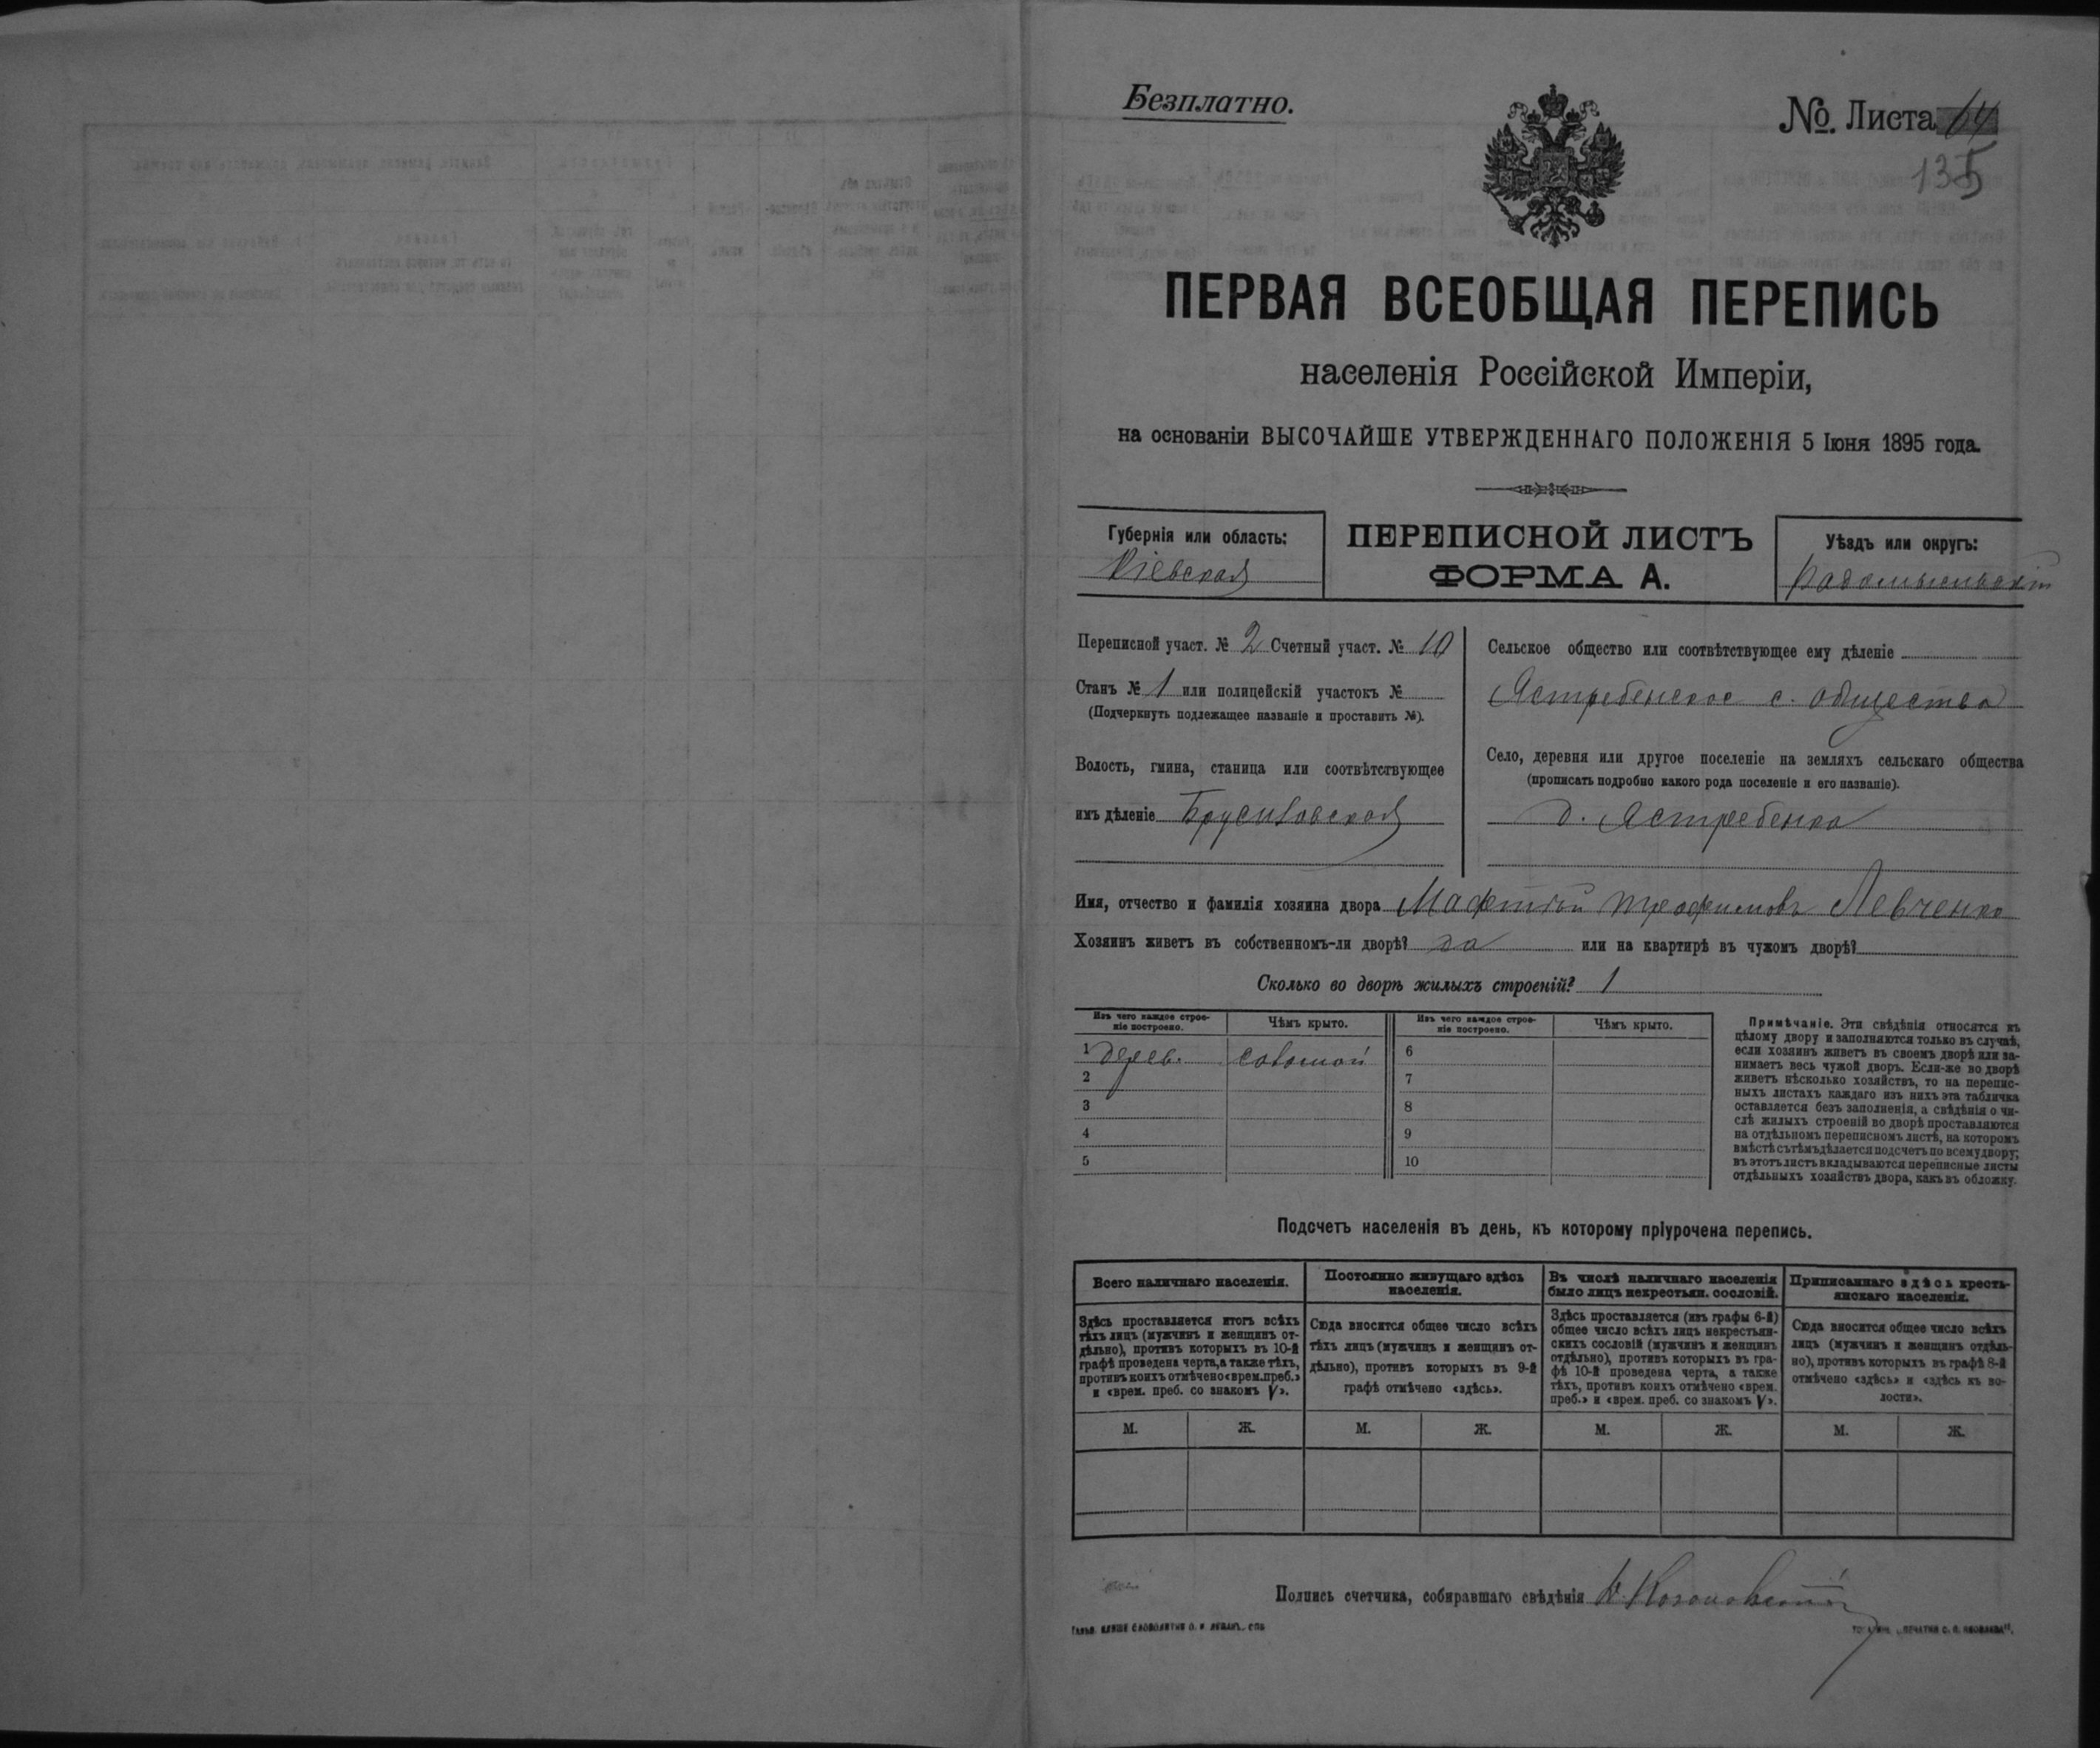 Безплатно.
№. Листа 64
135
ПЕРВАЯ ВСЕОБЩАЯ ПЕРЕПИСЬ
населенія Россійской Имперіи,
на основаніи ВЫСОЧАЙШЕ УТВЕРЖДЕННАГО ПОЛОЖЕНІЯ 5 Іюня 1895 года.
Губернія или область:
Кіевская
ПЕРЕПИСНОЙ ЛИСТЪ
ФОРМА А.
Уѣздъ или округъ:
Радомысльскій
Переписной участ. № 2 Счетный участ. № 10
Станъ № 1 или полицейскій участокъ №
(Подчеркнуть подлежащее названіе и проставить №).
Волость, гмина, станица или соотвѣтствующее
имъ дѣленіе Брусиловская
Сельское общество или соотвѣтствующее ему дѣленіе
Ястребенское с. общество
Село, деревня или другое поселеніе на земляхъ сельскаго общества
(прописать подробно какого рода поселеніе и его названіе).
д. Ястребенка
Имя, отчество и фамилія хозяина двора Мафтій Трофимовъ Левченко
Хозяинъ живетъ въ собственномъ-ли дворѣ? да или на квартирѣ въ чужомъ дворѣ?
Сколько во дворѣ жилыхъ строеній? 1
Изъ чего каждое строе-
ніе построено.
Чѣмъ крыто.
Изъ чего каждое строе-
ніе построено.
Чѣмъ крыто.
1 дерев. соломой 6
2 7
3 8
4 9
5 10
Примѣчаніе. Эти свѣдѣнія относятся къ
цѣлому двору и заполняются только въ случаѣ,
если хозяинъ живетъ въ своемъ дворѣ или за-
нимаетъ весь чужой дворъ. Если-же во дворѣ
живетъ нѣсколько хозяйствъ, то на перепис-
ныхъ листахъ каждаго изъ нихъ эта табличка
оставляется безъ заполненія, а свѣдѣнія о чи-
слѣ жилыхъ строеній во дворѣ проставляются
на отдѣльномъ переписномъ листѣ, на которомъ
вмѣстѣ съ тѣмъ дѣлается подсчетъ по всему двору;
въ этотъ листъ вкладываются переписные листы
отдѣльныхъ хозяйствъ двора, какъ въ обложку.
Подсчетъ населенія въ день, къ которому пріурочена перепись.
Всего наличнаго населенія.
Здѣсь проставляется итогъ всѣхъ
тѣхъ лицъ (мужчинъ и женщинъ от-
дѣльно), противъ которыхъ въ 10-й
графѣ проведена черта, а также тѣхъ,
противъ коихъ отмѣчено «врем. преб.»
и «врем. преб. со знакомъ V».
Постоянно живущаго здѣсь
населенія.
Сюда вносится общее число всѣхъ
тѣхъ лицъ (мужчинъ и женщинъ от-
дѣльно), противъ которыхъ въ 9-й
графѣ отмѣчено «здѣсь».
Въ числѣ наличнаго населенія
было лицъ некрестьян. сословій.
Здѣсь проставляется (изъ графы 6-й)
общее число всѣхъ лицъ некрестьян-
скихъ сословій (мужчинъ и женщинъ
отдѣльно), противъ которыхъ въ гра-
фѣ 10-й проведена черта, а также
тѣхъ, противъ коихъ отмѣчено «врем.
преб.» и «врем. преб. со знакомъ V».
Приписаннаго здѣсь кресть-
янскаго населенія.
Сюда вносится общее число всѣхъ
лицъ (мужчинъ и женщинъ отдѣль-
но), противъ которыхъ въ графѣ 8-й
отмѣчено «здѣсь» и «здѣсь къ во-
лости».
М. Ж. М. Ж. М. Ж. М. Ж.
Подпись счетчика, собиравшаго свѣдѣнія